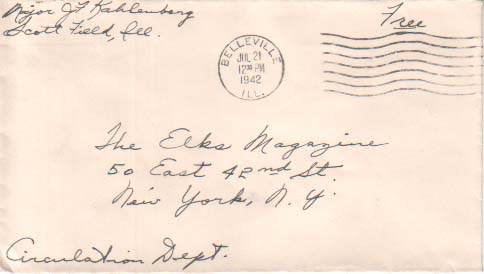 Major J F Kahlenberg
Scott Field, Ill.
Free
BELLEVILLE
JUL 21
12 30 PM
1942
ILL.
The Elks Magazine
50 East 42nd St.
New York, N.Y.
Circulation Dept.